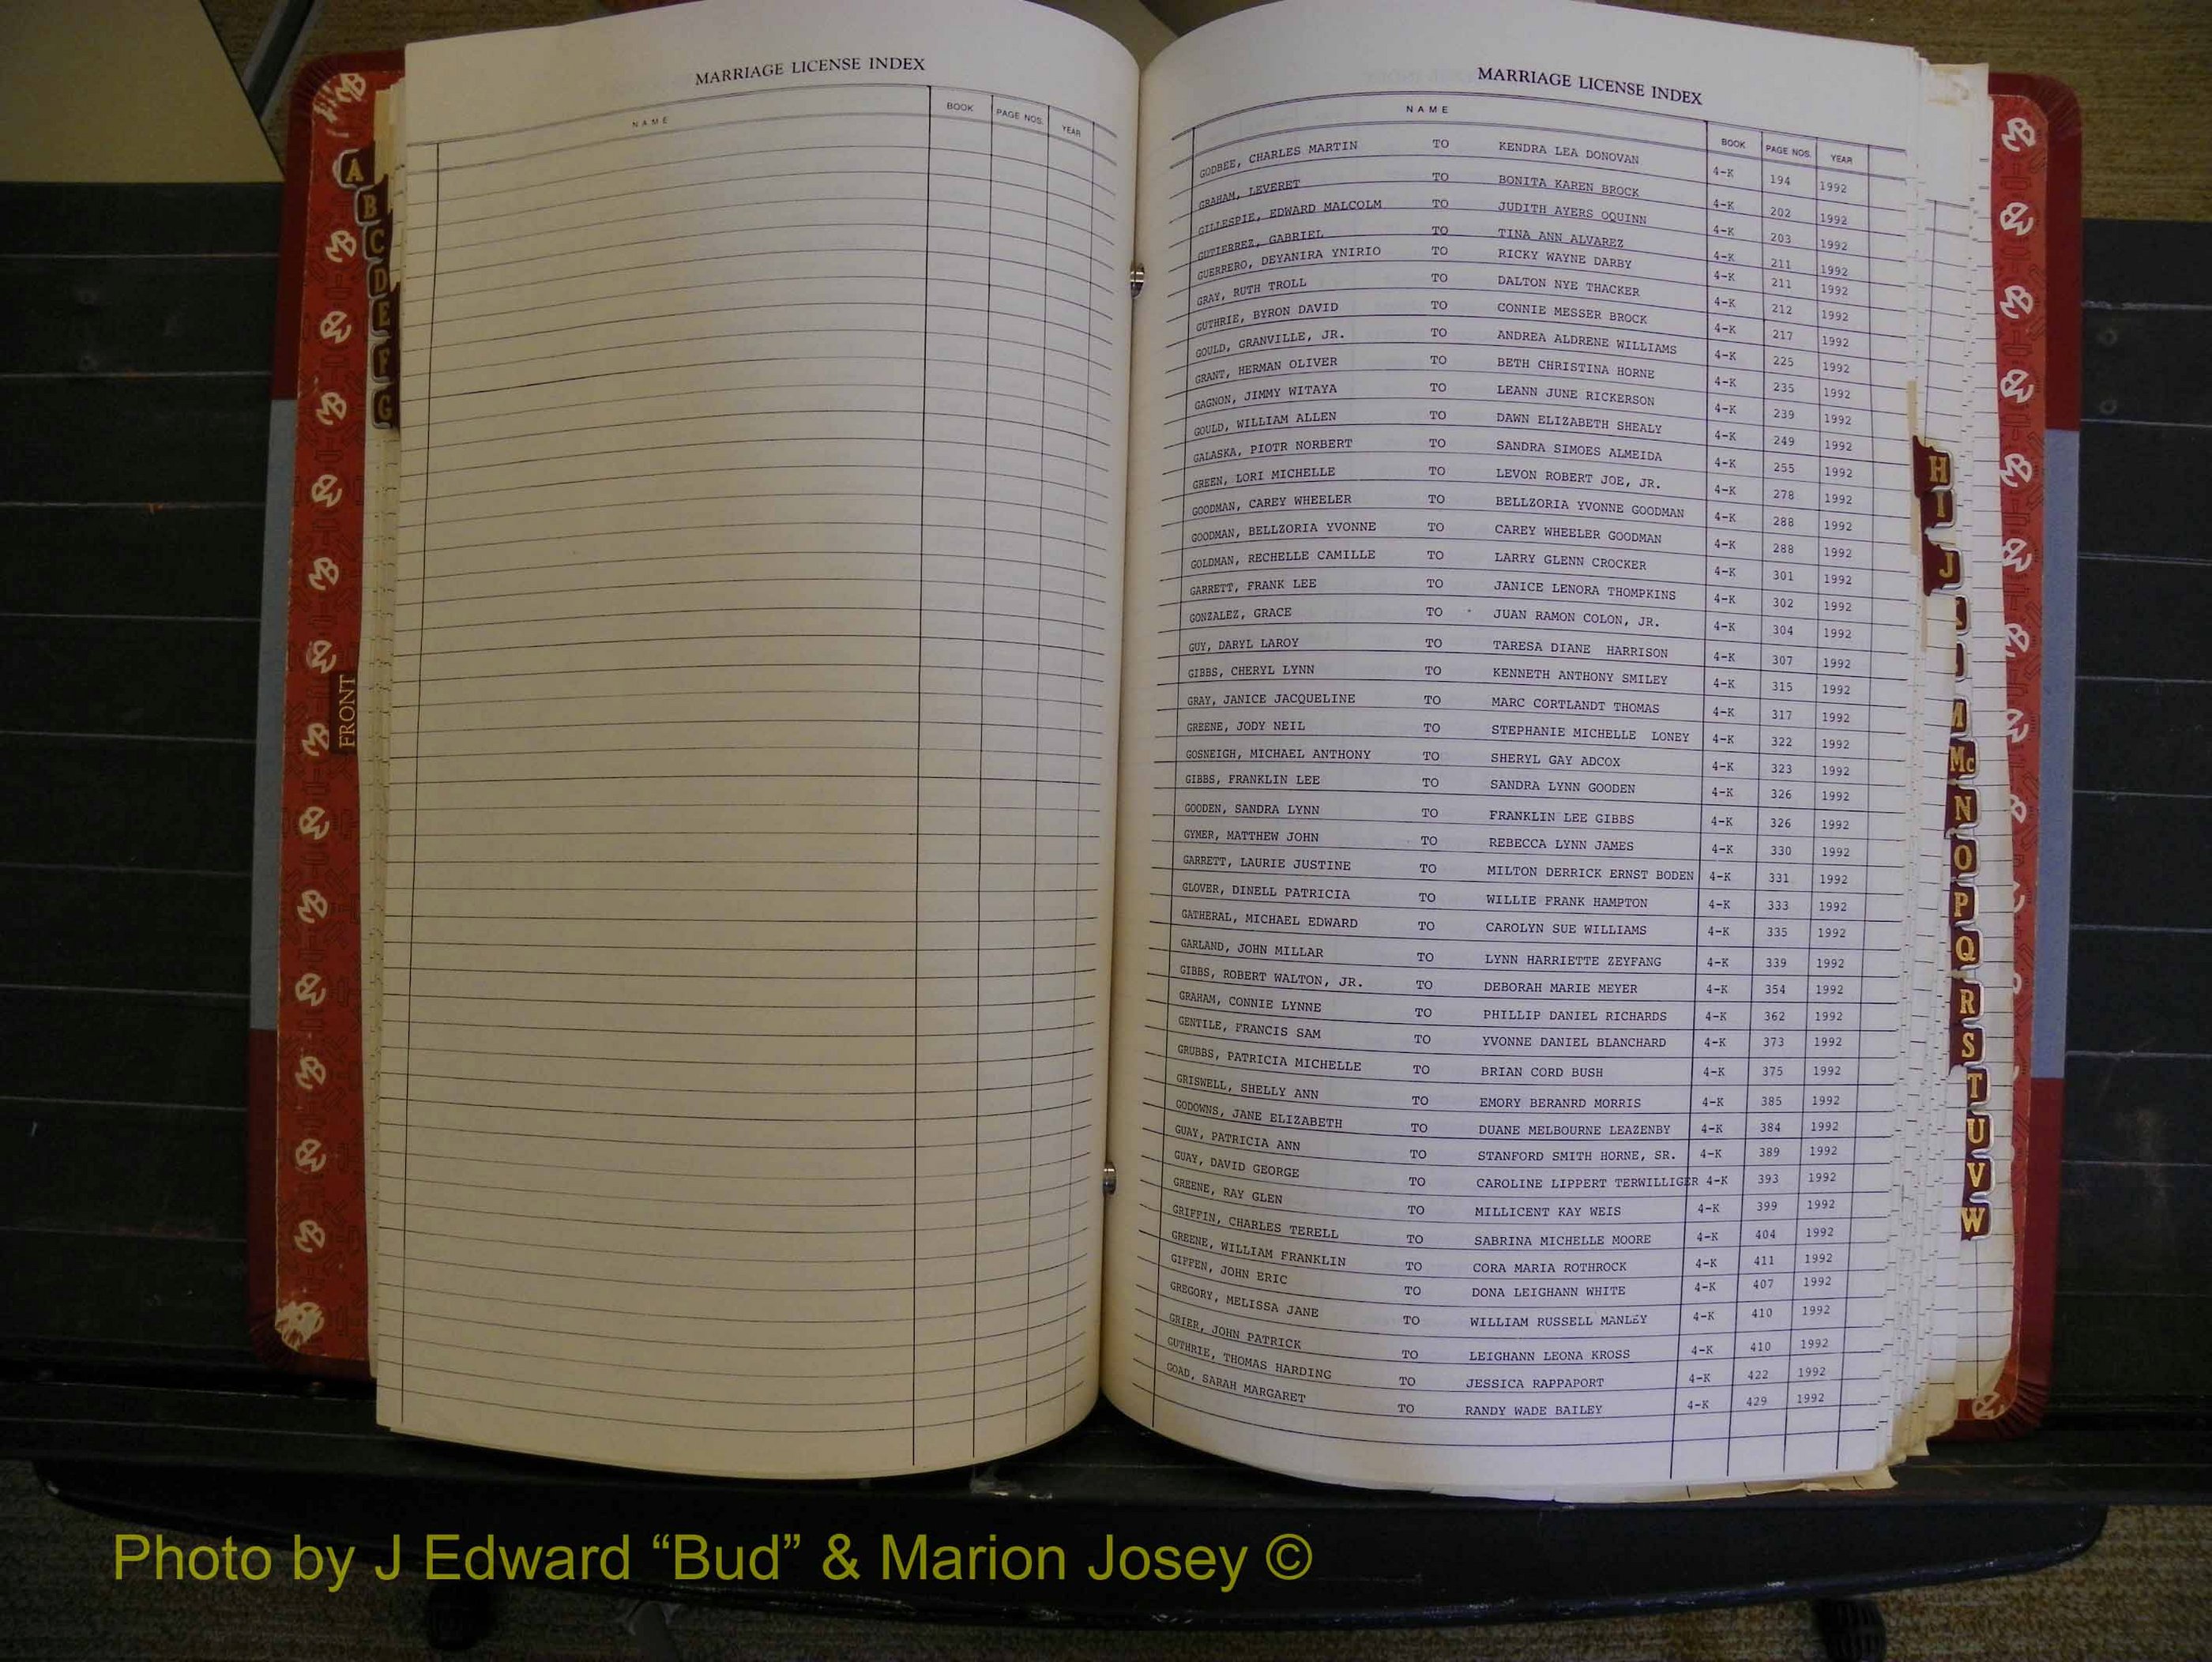 MARRIAGE LICENSE INDEX
NAME BOOK PAGE NOS. YEAR
A
B
C
D
E
F
G
FRONT
MARRIAGE LICENSE INDEX
NAME BOOK PAGE NOS. YEAR
GODBEE, CHARLES MARTIN TO KENDRA LEA DONOVAN 4-K 194 1992
GRAHAM, LEVERET TO BONITA KAREN BROCK 4-K 202 1992
GILLESPIE, EDWARD MALCOLM TO JUDITH AYERS OQUINN 4-K 203 1992
GUTIERREZ, GABRIEL TO TINA ANN ALVAREZ 4-K 211 1992
GUERRERO, DEYANIRA YNIRIO TO RICKY WAYNE DARBY 4-K 211 1992
GRAY, RUTH TROLL TO DALTON NYE THACKER 4-K 212 1992
GUTHRIE, BYRON DAVID TO CONNIE MESSER BROCK 4-K 217 1992
GOULD, GRANVILLE, JR. TO ANDREA ALDRENE WILLIAMS 4-K 225 1992
GRANT, HERMAN OLIVER TO BETH CHRISTINA HORNE 4-K 235 1992
GAGNON, JIMMY WITAYA TO LEANN JUNE RICKERSON 4-K 239 1992
GOULD, WILLIAM ALLEN TO DAWN ELIZABETH SHEALY 4-K 249 1992
GALASKA, PIOTR NORBERT TO SANDRA SIMOES ALMEIDA 4-K 255 1992
GREEN, LORI MICHELLE TO LEVON ROBERT JOE, JR. 4-K 278 1992
GOODMAN, CAREY WHEELER TO BELLZORIA YVONNE GOODMAN 4-K 288 1992
GOODMAN, BELLZORIA YVONNE TO CAREY WHEELER GOODMAN 4-K 288 1992
GOLDMAN, RECHELLE CAMILLE TO LARRY GLENN CROCKER 4-K 301 1992
GARRETT, FRANK LEE TO JANICE LENORA THOMPKINS 4-K 302 1992
GONZALEZ, GRACE TO JUAN RAMON COLON, JR. 4-K 304 1992
GUY, DARYL LAROY TO TARESA DIANE HARRISON 4-K 307 1992
GIBBS, CHERYL LYNN TO KENNETH ANTHONY SMILEY 4-K 315 1992
GRAY, JANICE JACQUELINE TO MARC CORTLANDT THOMAS 4-K 317 1992
GREENE, JODY NEIL TO STEPHANIE MICHELLE LONEY 4-K 322 1992
GOSNEIGH, MICHAEL ANTHONY TO SHERYL GAY ADCOX 4-K 323 1992
GIBBS, FRANKLIN LEE TO SANDRA LYNN GOODEN 4-K 326 1992
GOODEN, SANDRA LYNN TO FRANKLIN LEE GIBBS 4-K 326 1992
GYMER, MATTHEW JOHN TO REBECCA LYNN JAMES 4-K 330 1992
GARRETT, LAURIE JUSTINE TO MILTON DERRICK ERNST BODEN 4-K 331 1992
GLOVER, DINELL PATRICIA TO WILLIE FRANK HAMPTON 4-K 333 1992
GATHERAL, MICHAEL EDWARD TO CAROLYN SUE WILLIAMS 4-K 335 1992
GARLAND, JOHN MILLAR TO LYNN HARRIETTE ZEYFANG 4-K 339 1992
GIBBS, ROBERT WALTON, JR. TO DEBORAH MARIE MEYER 4-K 354 1992
GRAHAM, CONNIE LYNNE TO PHILLIP DANIEL RICHARDS 4-K 362 1992
GENTILE, FRANCIS SAM TO YVONNE DANIEL BLANCHARD 4-K 373 1992
GRUBBS, PATRICIA MICHELLE TO BRIAN CORD BUSH 4-K 375 1992
GRISWELL, SHELLY ANN TO EMORY BERANRD MORRIS 4-K 385 1992
GODOWNS, JANE ELIZABETH TO DUANE MELBOURNE LEAZENBY 4-K 384 1992
GUAY, PATRICIA ANN TO STANFORD SMITH HORNE, SR. 4-K 389 1992
GUAY, DAVID GEORGE TO CAROLINE LIPPERT TERWILLIGER 4-K 393 1992
GREENE, RAY GLEN TO MILLICENT KAY WEIS 4-K 399 1992
GRIFFIN, CHARLES TERELL TO SABRINA MICHELLE MOORE 4-K 404 1992
GREENE, WILLIAM FRANKLIN TO CORA MARIA ROTHROCK 4-K 411 1992
GIPPEN, JOHN ERIC TO DONA LEIGHANN WHITE 4-K 407 1992
GREGORY, MELISSA JANE TO WILLIAM RUSSELL MANLEY 4-K 410 1992
GRIER, JOHN PATRICK TO LEIGHANN LEONA KROSS 4-K 410 1992
GUTHRIE, THOMAS HARDING TO JESSICA RAPPAPORT 4-K 422 1992
GOAD, SARAH MARGARET TO RANDY WADE BAILEY 4-K 429 1992
H
I
J
M
Mc
N
O
P
Q
R
S
T
U
V
W
Photo by J Edward “Bud” & Marion Josey ©